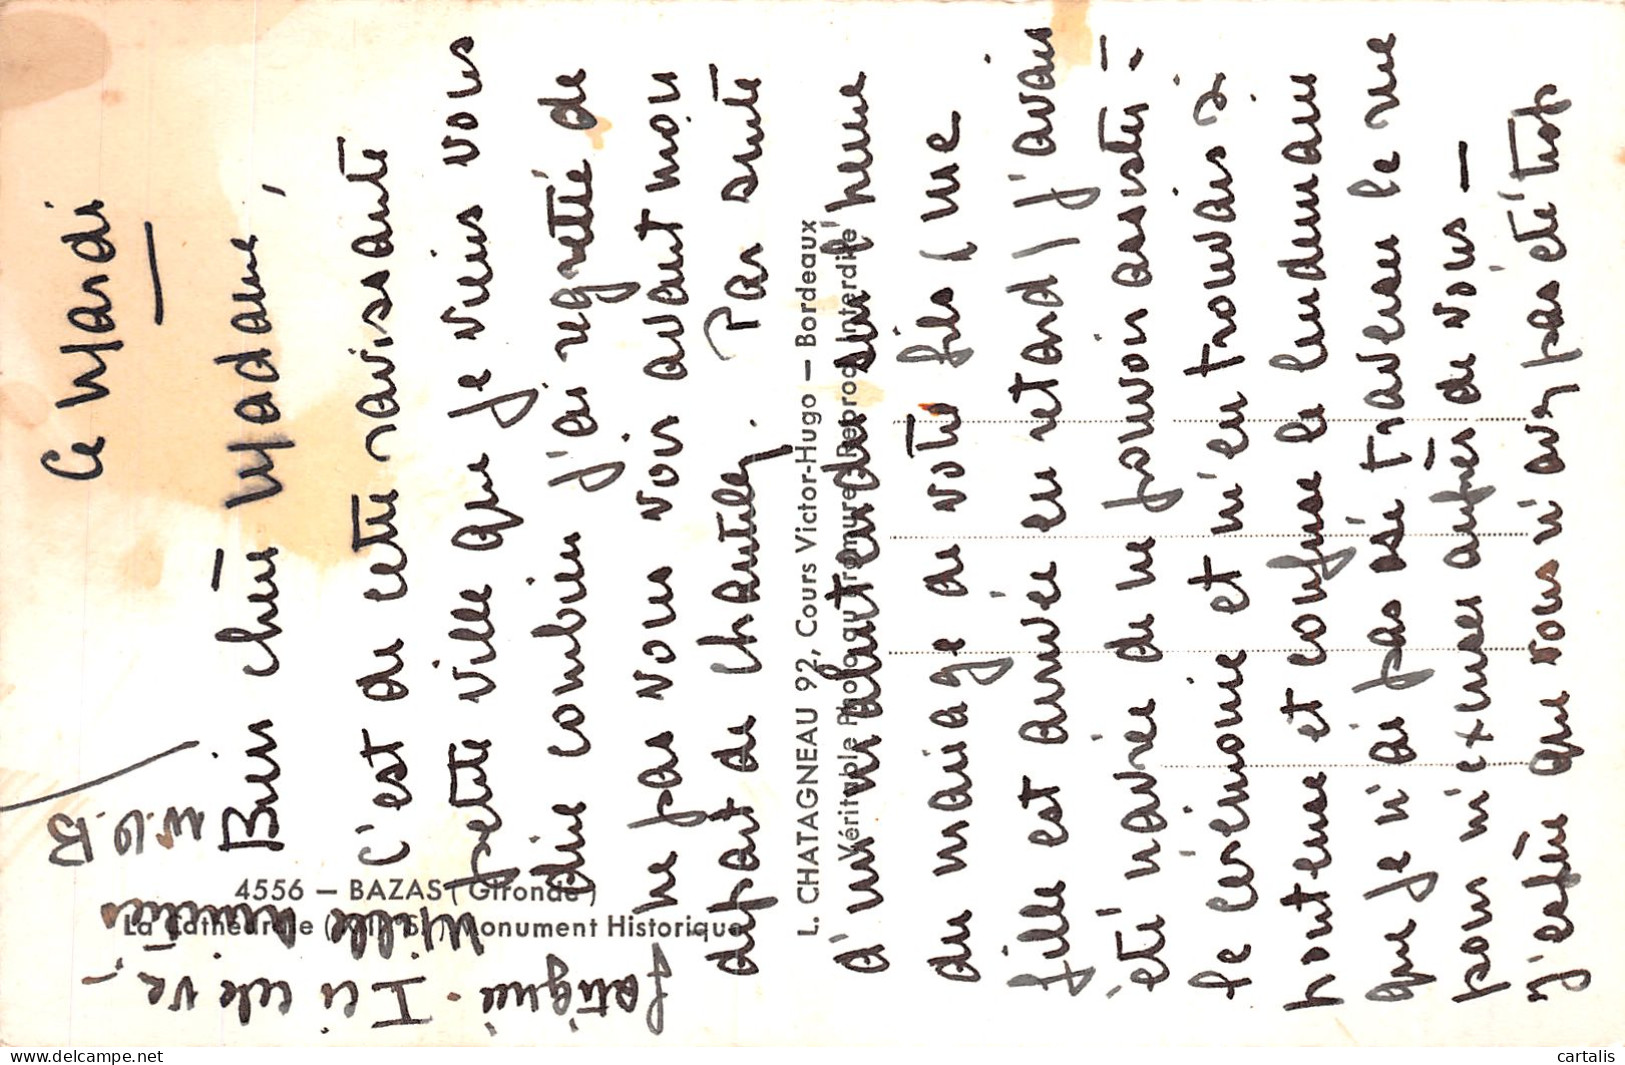 Ce Mardi
Bien chère Madame,
C'est de cette ravissante
petite ville que je viens vous
dire combien j'ai regretté de
ne pas vous voir avant mon
départ de Chantilly. Par suite
d'un malentendu sur l'heure
du mariage de votre fils (me
fille est arrivée en retard) j'avais
été navrée de ne pouvoir assister à
la cérémonie et m'en trouvais si
honteuse et confuse le lendemain
que je n'ai pas osé traverser la rue
pour m'excuser auprès de vous —
J'espère que vous n'avez pas été trop
fatiguée. Ici cela va —
Mille amitiés
4556 — BAZAS (Gironde)
La Cathédrale Monument Historique
L. CHATAGNEAU 92, Cours Victor-Hugo — Bordeaux
Véritable Photogravure Reprod. Interdite
www.delcampe.net
cartalis